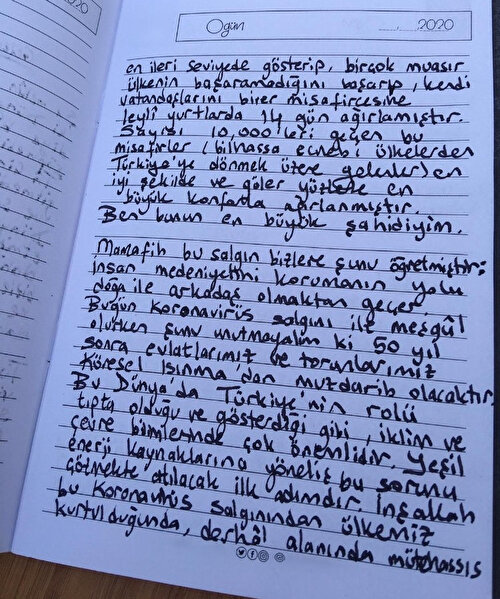 O gün
2020
en ileri seviyede gösterip, birçok muasır
ülkenin başaramadığını başarıp, kendi
vatandaşlarını birer misafircesine
leyli yurtlarda 14 gün ağırlamıştır.
Sayısı 10,000'leri geçen bu
misafirler (bilhassa ecnebi ülkelerden
Türkiye'ye dönmek üzere gelenler) en
iyi şekilde ve güler yüzlerle en
büyük konforla ağırlanmıştır
Ben bunun en büyük şahidiyim.
Mamafih bu salgın bizlere şunu öğretmiştir:
İnsan medeniyetini korumanın yolu
doğa ile arkadaş olmaktan geçer.
Bugün Koronavirüs salgını ile meşgûl
olurken şunu unutmayalım ki 50 yıl
sonra evlatlarımız ve torunlarımız
Küresel Isınma'dan muzdarib olacaktır.
Bu Dünya'da Türkiye'nin rolü
tıpta olduğu ve gösterdiği gibi, iklim ve
çevre bilimlerinde çok önemlidir. Yeşil
enerji kaynaklarına yöneliş bu sorunu
çözmekte atılacak ilk adımdır. İnşallah
bu Koronavirüs salgınından ülkemiz
kurtulduğunda, derhâl alanında mütehassıs